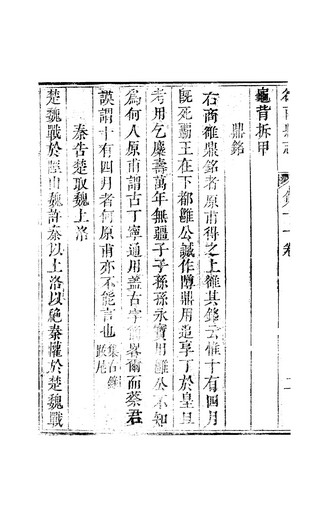 龜背拆甲
鼎銘
右商雒鼎銘者原甫得之上雒其銘云惟十有四月
既死霸王在下都雒公諴作𨺅鼎用追享丁於皇且
考用乞麋壽萬年無疆子子孫孫永寳用雒公不知
爲何人原甫謂古丁寧通用盖古字簡畧爾而蔡君
謨謂十有四月者何原甫亦不能言也集古錄跋尾
秦告楚取魏上洛
楚魏戰於陘山魏許秦以上洛以絶秦權於楚魏戰